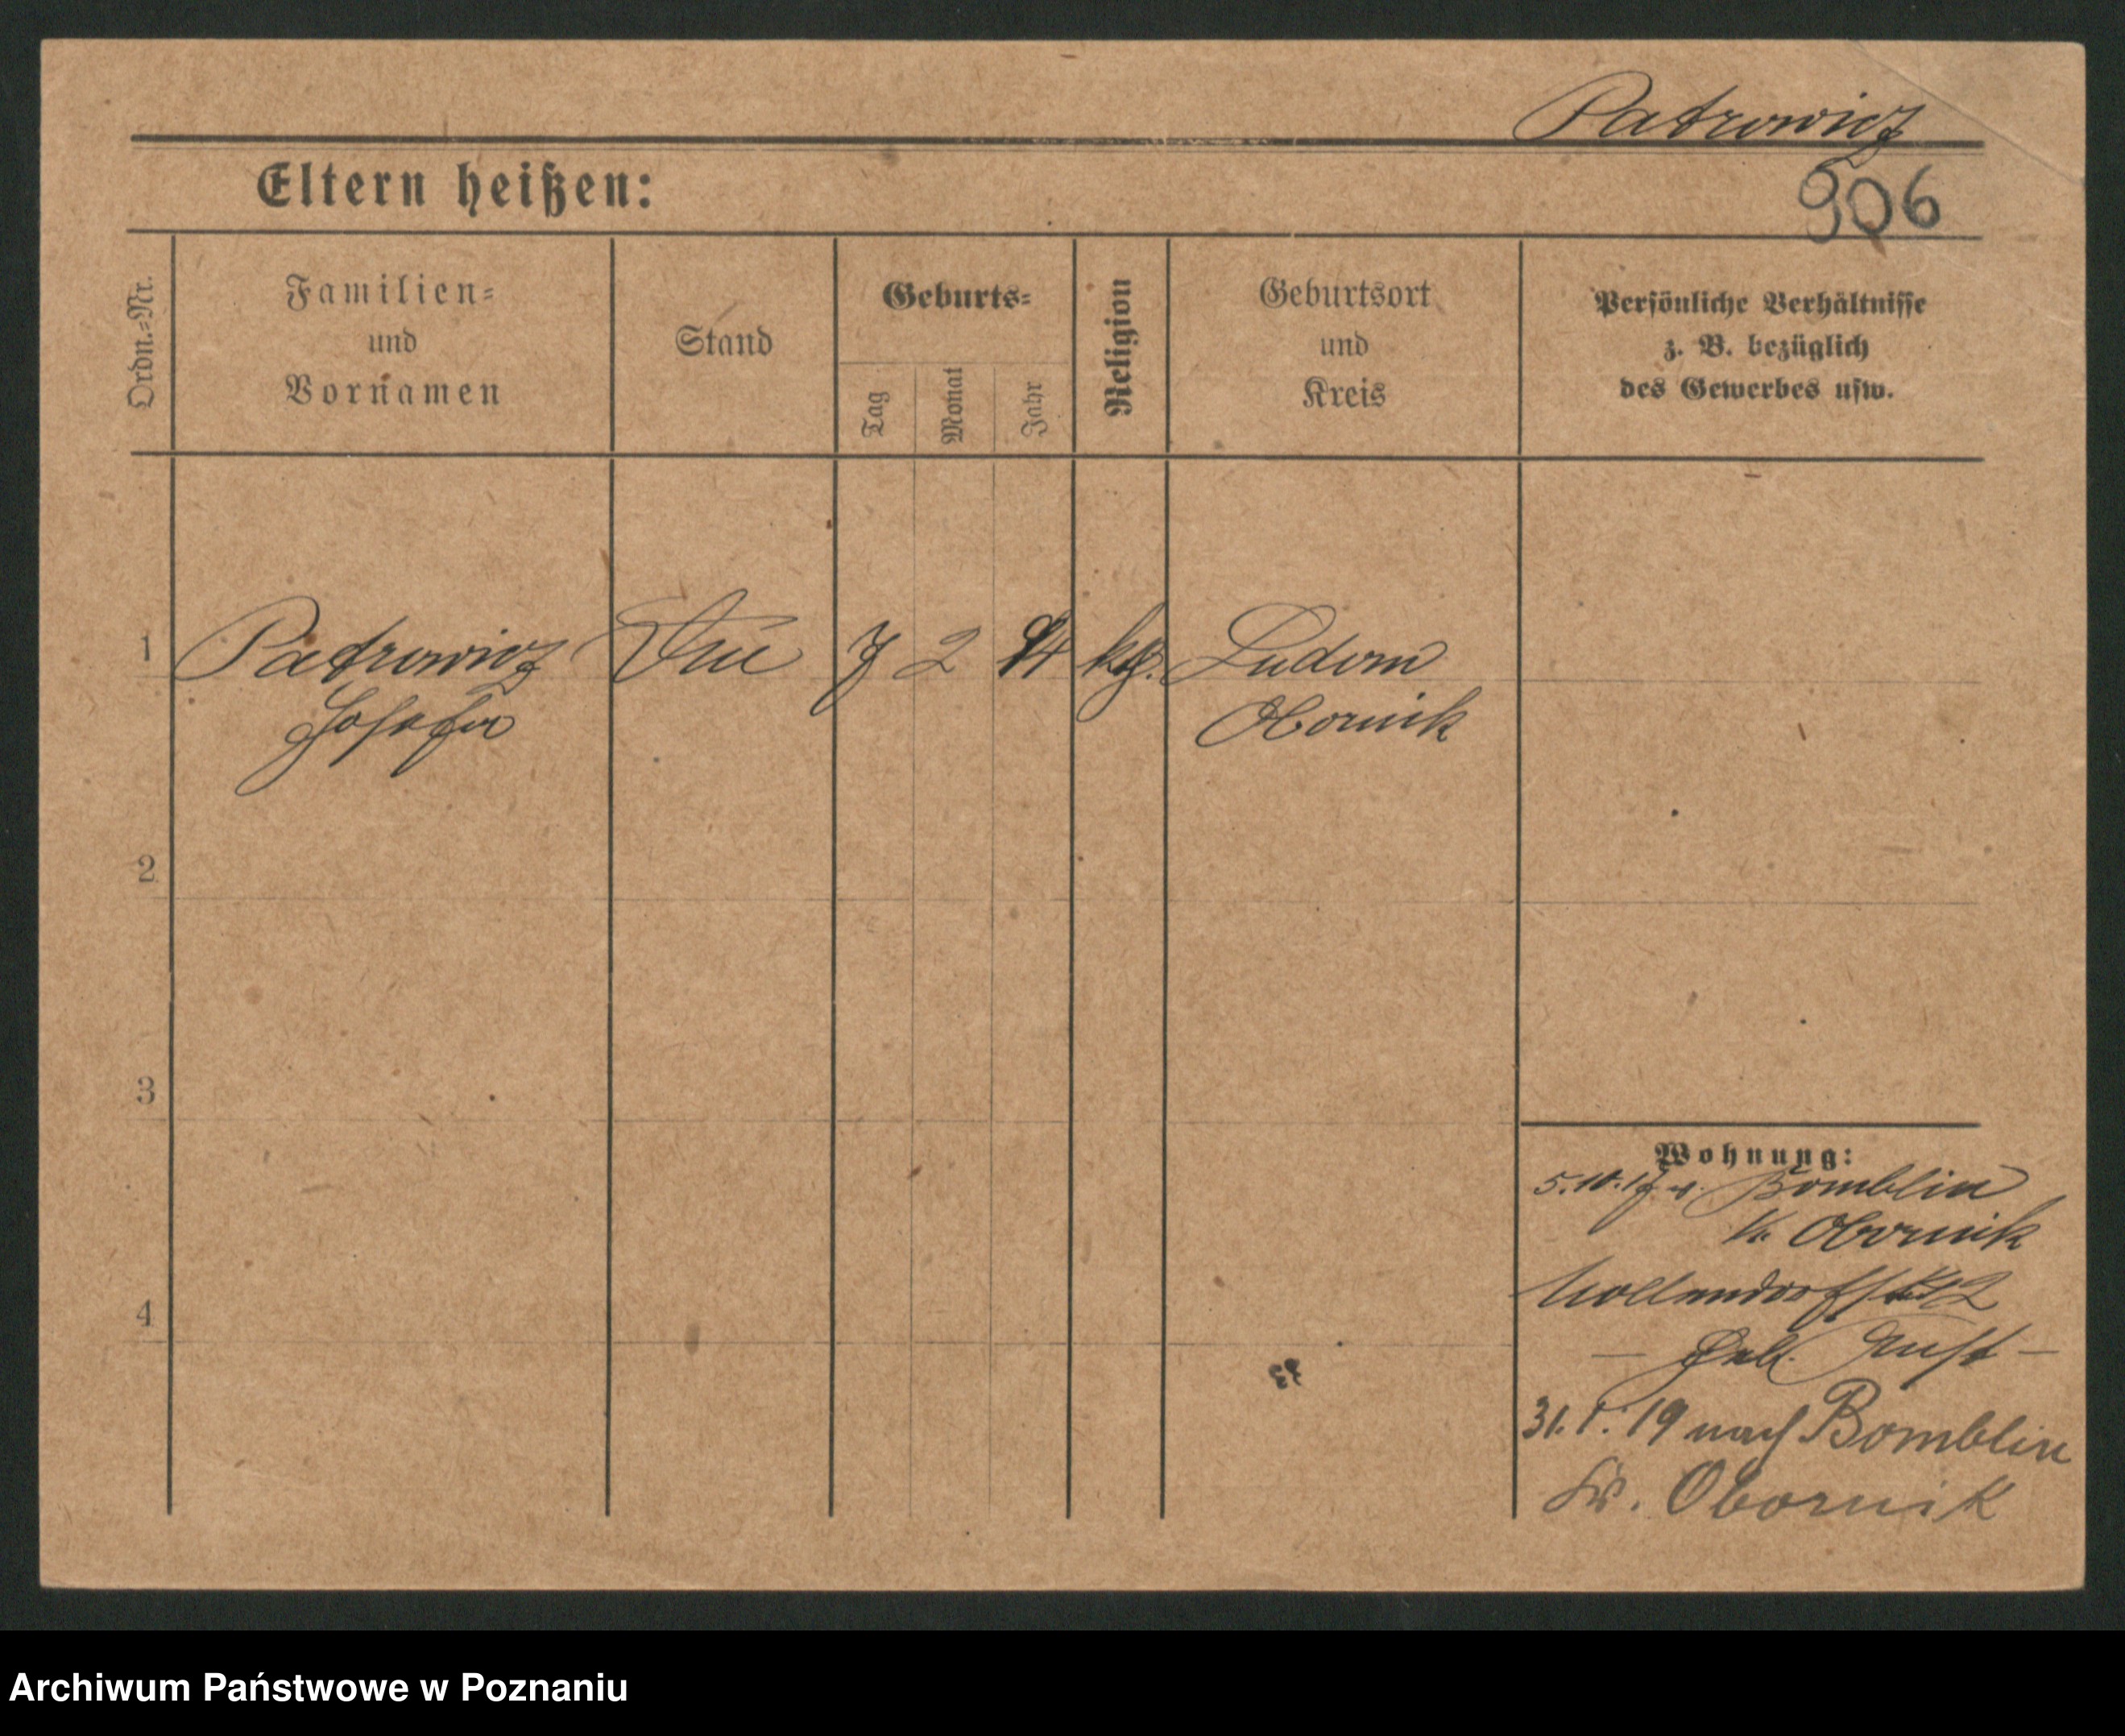 Patrowicz
Eltern heißen:
906
Ordn.-Nr.
Familien-
und
Vornamen
Stand
Geburts-
Tag
Monat
Jahr
Religion
Geburtsort
und
Kreis
Persönliche Verhältnisse
z. B. bezüglich
des Gewerbes usw.
1 Patrowicz 7 2 kg. Ludom
Josefa Obornik
2
3
4
Wohnung:
5.10.17 v. Bomblin
K. Obornik
12
31.1.19 nach Bomblin
Kr. Obornik
Archiwum Państwowe w Poznaniu